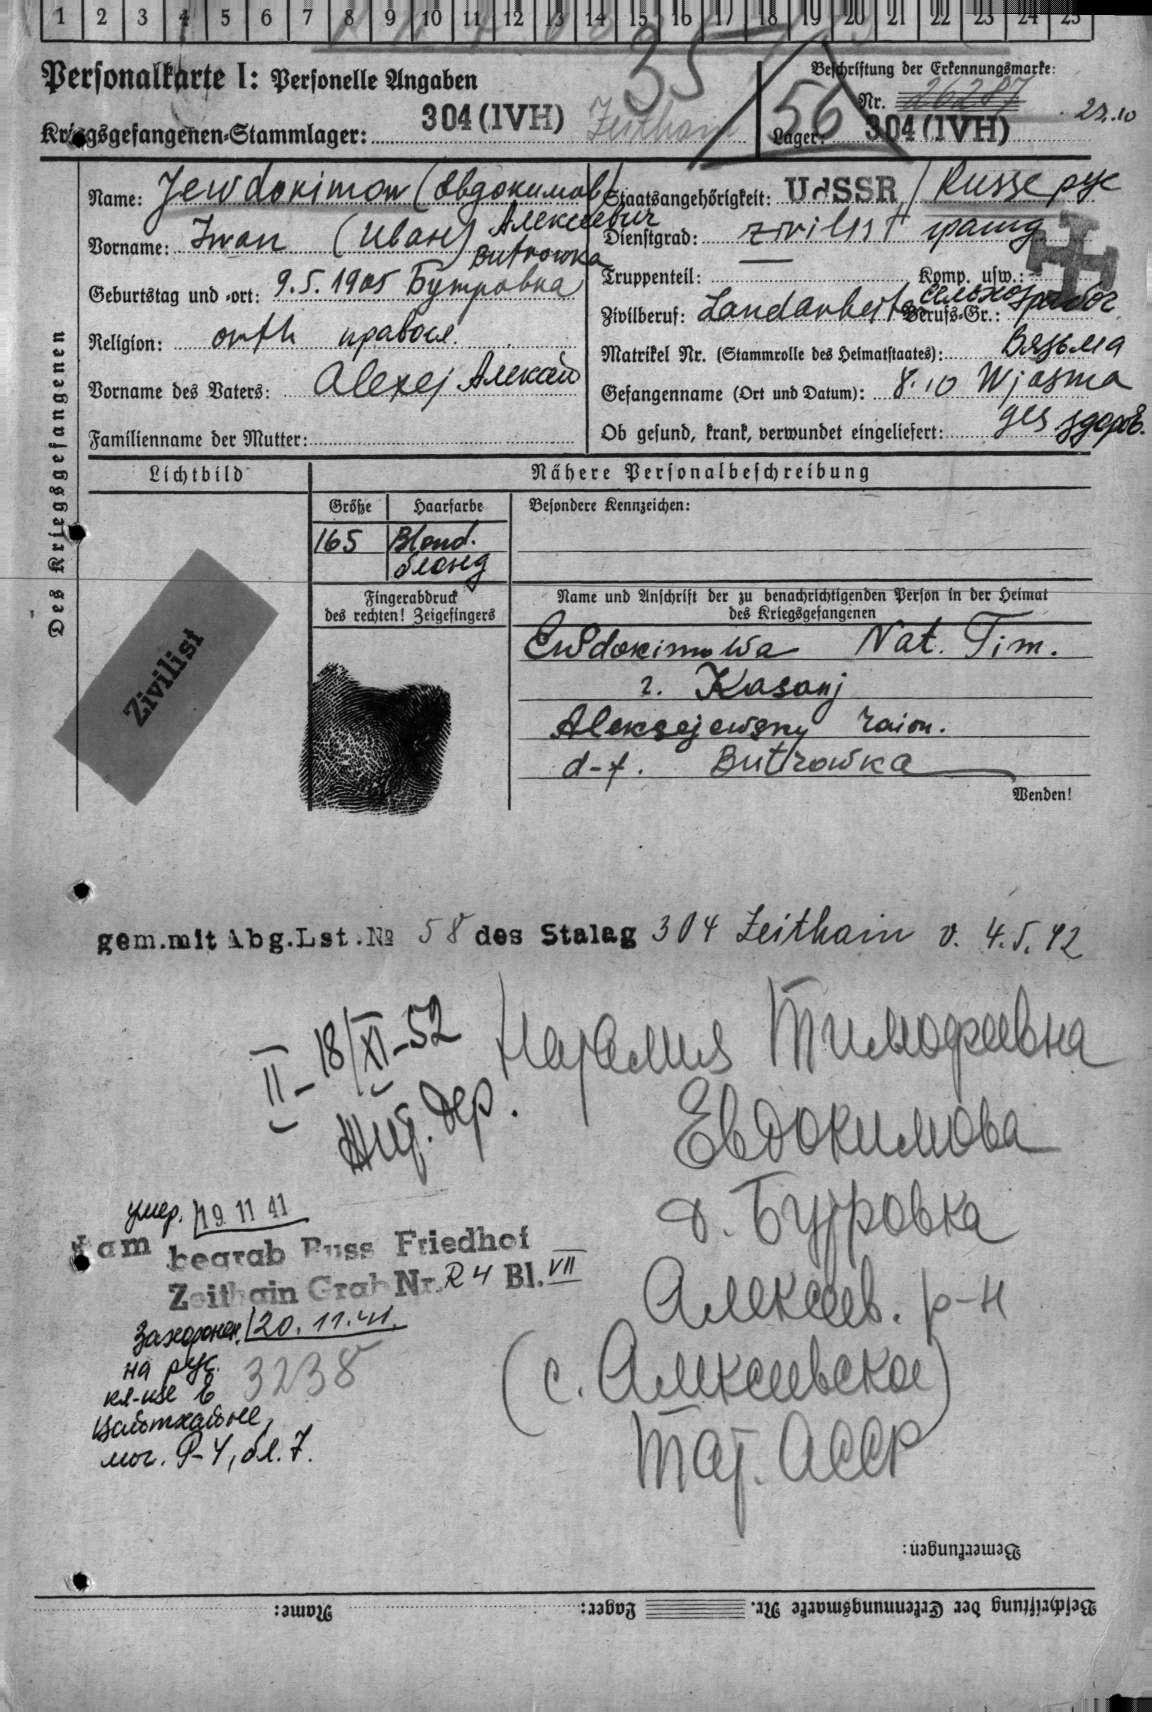 1 2 3 4 5 6 7 8 9 10 11 12 13 14 15 16 17 18 19 20 21 22 23 24 25
Personalkarte I: Personelle Angaben
35
56
Beschriftung der Erkennungsmarke:
Nr. 26287 23.10
Kriegsgefangenen-Stammlager: 304 (IVH) Zeithain
Lager: 304 (IVH)
Des Kriegsgefangenen
Name: Jewdokimow (Овдокимов)
Vorname: Iwan (Иван) Алексеевич
Butrowka
Geburtstag und -ort: 9.5.1905 Бутровка
Religion: orth правосл.
Vorname des Vaters: Alexej Алексей
Familienname der Mutter:
Staatsangehörigkeit: UdSSR / Russe рус
Dienstgrad: zivilist гражд
Truppenteil: — Komp. usw.:
Zivilberuf: Landarbeiter Berufs-Gr.: сельхозрабоч.
Matrikel Nr. (Stammrolle des Heimatstaates): Вязьма
Gefangennahme (Ort und Datum): 8.10 Wjasma
Ob gesund, krank, verwundet eingeliefert: ges здоров.
Lichtbild
Zivilist
Nähere Personalbeschreibung
Größe Haarfarbe Besondere Kennzeichen:
165 Blond.
блонд
Fingerabdruck
des rechten! Zeigefingers
Name und Anschrift der zu benachrichtigenden Person in der Heimat
des Kriegsgefangenen
Ewdokimowa Nat. Tim.
г. Kasanj
Aleksejewsky raion.
d-f. Butrowka
Wenden!
gem.mit Abg.Lst.№ 58 des Stalag 304 Zeithain v. 4.5.42
II-18/XI-52
Наталия Тимофеевна
Евдокимова
д. Бутровка
Алексеев. р-н
(с. Алексеевское)
Тат. АССР
умер. 19 11 41
am
begrab Russ Friedhof
Zeithain Grab Nr. R 4 Bl. VII
Захоронен 20.11.41.
на рус. 3238
кл-ще в
Цайтхайне,
мог. Р-4, бл. 7.
Bemerkungen:
Beschriftung der Erkennungsmarke Nr. Lager: Name: